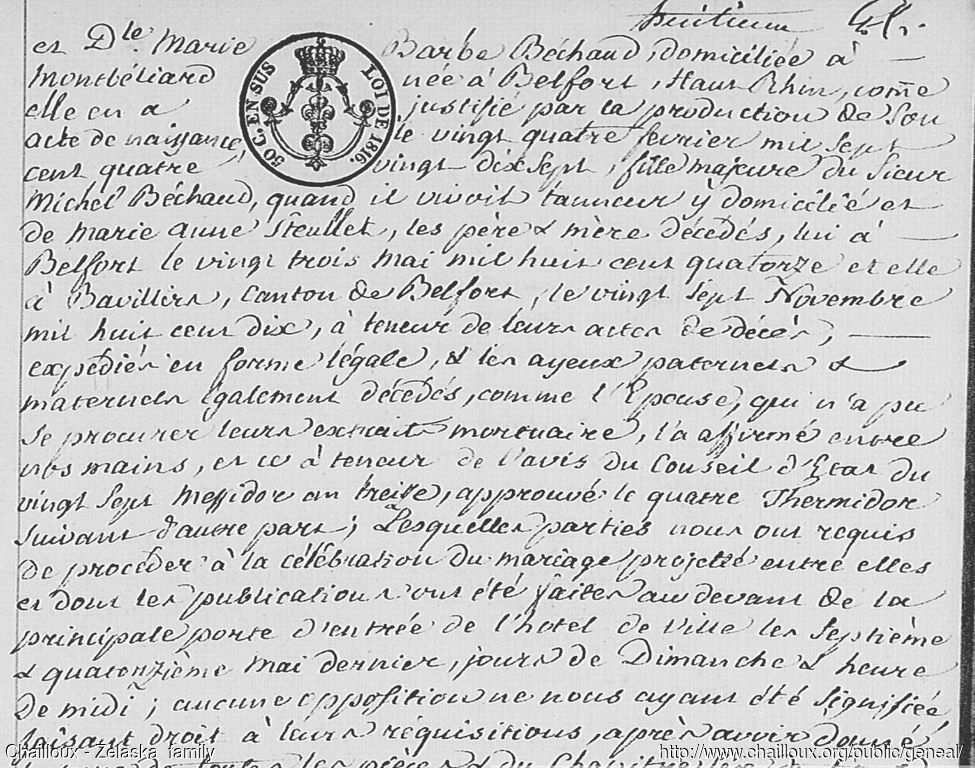 huitieme
et Dlle. Marie Barbe Béchaud, domiciliée à
Montbéliard née à Belfort, Haut Rhin, come
elle en a justifié par la production de Son
acte de naissance, le vingt quatre fevrier mil Sept
cent quatre vingt dix Sept, fille majeure du Sieur
Michel Béchaud, quand il vivoit tanneur y domicilié et
de Marie anne Steullet, les père & mère décedés, lui à
Belfort le vingt trois Mai mil huit cent quatorze et elle
à Bavilliers, Canton de Belfort, le vingt Sept Novembre
mil huit cent dix, à teneur de leurs actes de décès,
expédiés en forme légale, & les ayeux paternels &
maternels également décédés, comme l'Epouse, qui n'a pu
Se procurer leurs extraits mortuaire, l'a affirmé entre
nos mains, et ce à teneur de l'avis du Conseil d'Etat du
vingt Sept Messidor an treize, approuvé le quatre Thermidor
Suivant d'autre part; Lesquelles parties nous ont requis
de procéder à la célébration du mariage projetté entre elles
et dont les publications ont été faites au devant de la
principale porte d'entrée de l'hotel de Ville les Septième
& quatorzième Mai dernier, jours de Dimanche & heure
de midi; aucune opposition ne nous ayant été Signifiée
faisant droit à leurs réquisitions, après avoir donné
50 C. EN SUS
LOI DE 1816
Chailloux - Zelaska family
http://www.chailloux.org/public/geneal/